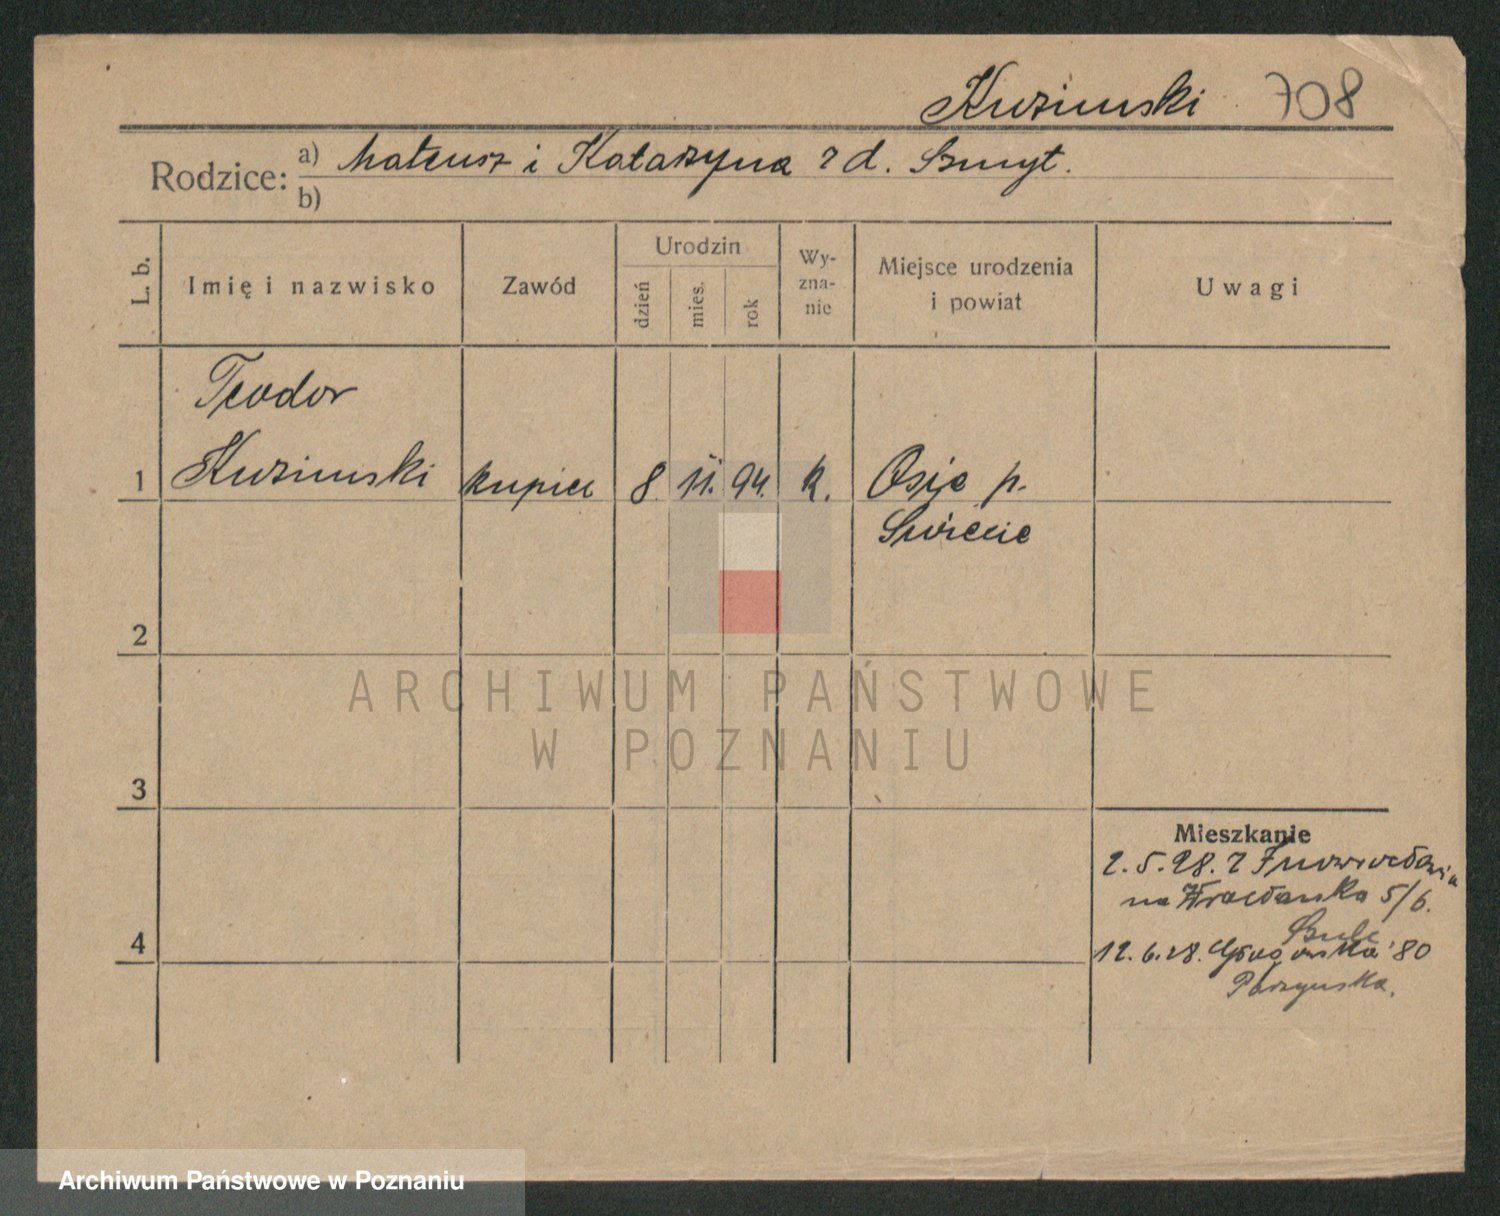 Kuziemski 708
Rodzice: a) Mateusz i Katarzyna z d. Szmyt.
b)
L. b.
Imię i nazwisko
Zawód
Urodzin
dzień
mies.
rok
Wy-
zna-
nie
Miejsce urodzenia
i powiat
Uwagi
Teodor
1 Kuziemski kupiec 8. 11. 94. k. Osie p.
Świecie
2
3
4
Mieszkanie
2.5.28. z Inowrocławia
na Wrocławska 5/6.
Szulc
12.6.28. Głogowska 80
ARCHIWUM PAŃSTWOWE
W POZNANIU
Archiwum Państwowe w Poznaniu